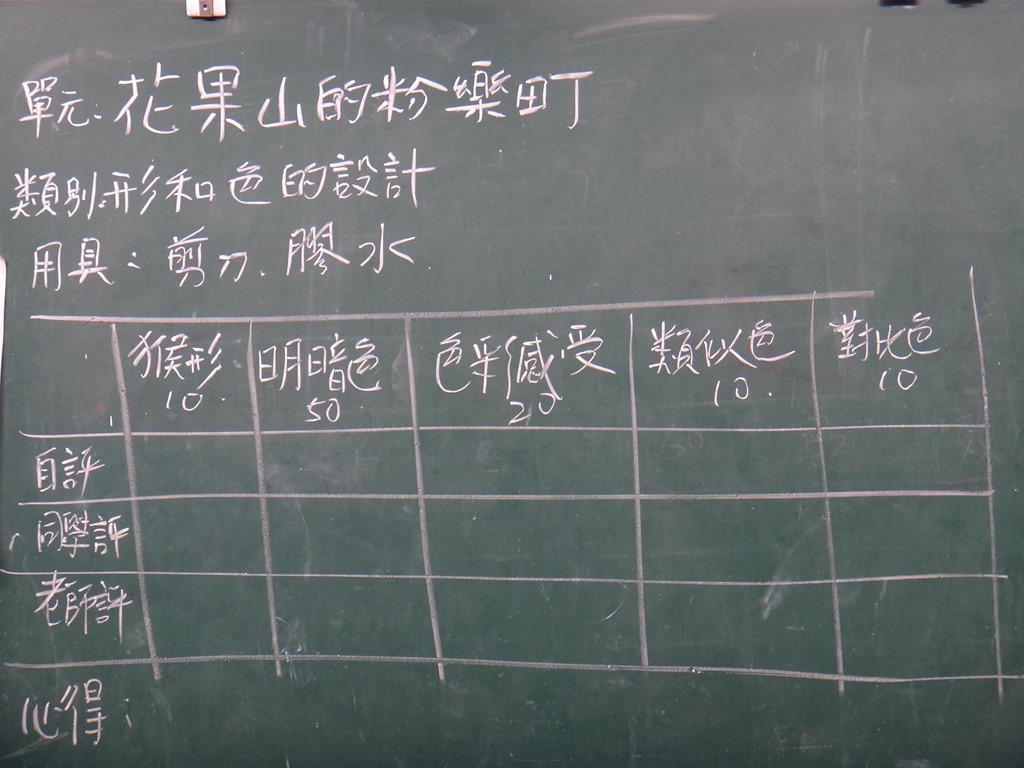 單元:花果山的粉樂町
類別:形和色的設計
用具:剪刀.膠水
猴形 明暗色 色彩感受 類似色 對比色
10 50 20 10 10
自評
同學評
老師評
心得: